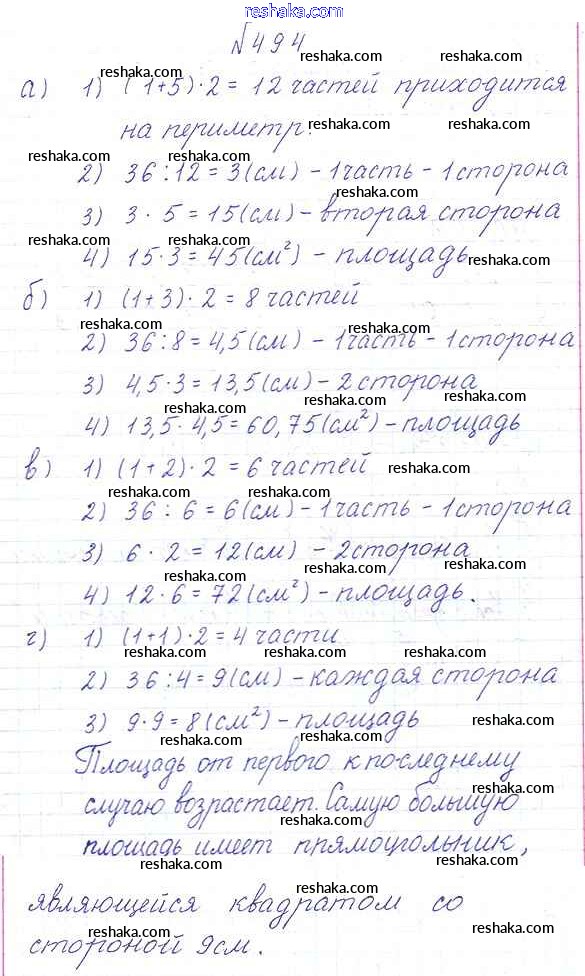 reshaka.com
№494
reshaka.com reshaka.com
reshaka.com
а) 1) (1+5)·2 = 12 частей приходится
на периметр.
reshaka.com reshaka.com
2) 36:12 = 3(см) – 1часть – 1сторона
reshaka.com
3) 3 · 5 = 15(см) – вторая сторона
reshaka.com reshaka.com
4) 15·3 = 45(см²) – площадь
reshaka.com
б) 1) (1+3)·2 = 8 частей
reshaka.com reshaka.com
2) 36:8 = 4,5(см) – 1часть – 1сторона
3) 4,5·3 = 13,5(см) – 2сторона
reshaka.com reshaka.com
4) 13,5·4,5 = 60,75(см²) – площадь
в) 1) (1+2)·2 = 6 частей reshaka.com
reshaka.com
2) 36 : 6 = 6(см) – 1часть – 1сторона
reshaka.com
3) 6 · 2 = 12(см) – 2сторона
reshaka.com reshaka.com
4) 12·6 = 72(см²) – площадь.
г) 1) (1+1)·2 = 4 части
reshaka.com reshaka.com
2) 36:4 = 9(см) – каждая сторона
reshaka.com
3) 9·9 = 8(см²) – площадь reshaka.com
reshaka.com
Площадь от первого к последнему
reshaka.com
случаю возрастает. Самую большую
reshaka.com
площадь имеет прямоугольник,
reshaka.com
reshaka.com
являющейся квадратом со
reshaka.com
стороной 9см.
reshaka.com reshaka.com